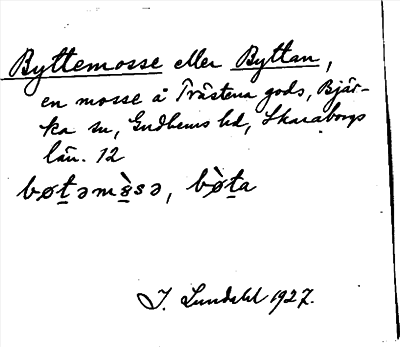 Byttemosse eller Byttan,
en mosse å Trästena gods, Bjär-
ka sn, Gudhems hd, Skaraborgs
län. 12
bøtəmòsə, bø̀ta
J. Lundahl 1927.